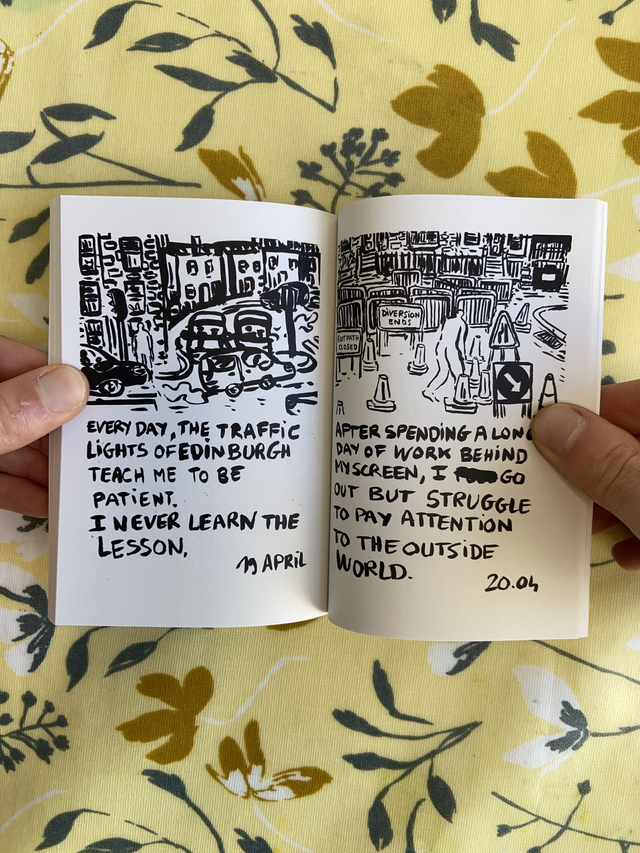 EVERY DAY, THE TRAFFIC
LIGHTS OF EDINBURGH
TEACH ME TO BE
PATIENT.
I NEVER LEARN THE
LESSON.
19 APRIL
DIVERSION
ENDS
FOOTPATH
CLOSED
AFTER SPENDING A LONG
DAY OF WORK BEHIND
MY SCREEN, I GO
OUT BUT STRUGGLE
TO PAY ATTENTION
TO THE OUTSIDE
WORLD.
20.04